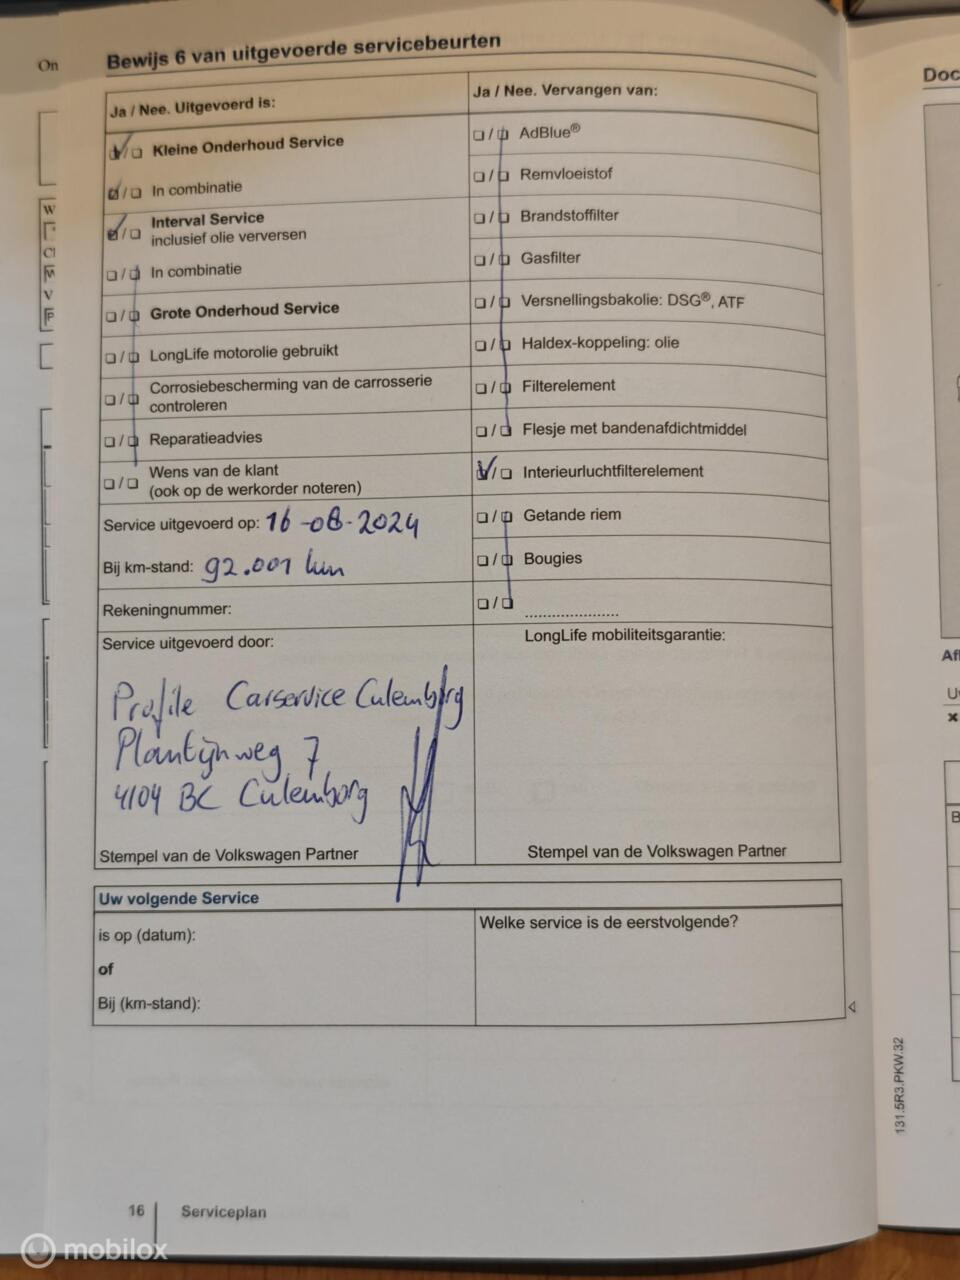 On
Bewijs 6 van uitgevoerde servicebeurten
Ja / Nee. Uitgevoerd is:
Kleine Onderhoud Service
In combinatie
Interval Service
inclusief olie verversen
In combinatie
Grote Onderhoud Service
LongLife motorolie gebruikt
Corrosiebescherming van de carrosserie
controleren
Reparatieadvies
Wens van de klant
(ook op de werkorder noteren)
Service uitgevoerd op: 16-08-2024
Bij km-stand: 92.001 km
Rekeningnummer:
Service uitgevoerd door:
Profile Carservice Culemborg
Plantijnweg 7
4104 BC Culemborg
Stempel van de Volkswagen Partner
Ja / Nee. Vervangen van:
AdBlue®
Remvloeistof
Brandstoffilter
Gasfilter
Versnellingsbakolie: DSG®, ATF
Haldex-koppeling: olie
Filterelement
Flesje met bandenafdichtmiddel
Interieurluchtfilterelement
Getande riem
Bougies
....................
LongLife mobiliteitsgarantie:
Stempel van de Volkswagen Partner
Uw volgende Service
is op (datum):
of
Bij (km-stand):
Welke service is de eerstvolgende?
16
Serviceplan
131.5R3.PKW.32
Doc
mobilox